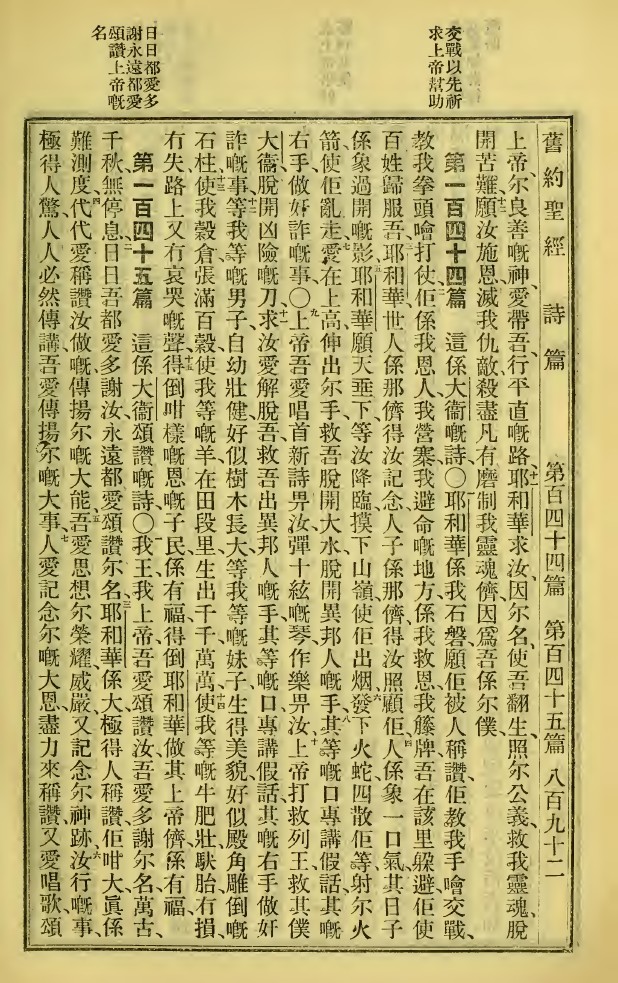 交戰以先祈
求上帝幫助
日日都愛多
謝永遠都愛
頌讚上帝嘅
名
舊約聖經 詩篇 第百四十四篇 第百四十五篇 八百九十二
上帝、尔良善嘅神、愛帶吾行平直嘅路、十一耶和華求汝、因尔名、使吾翻生、照尔公義、救我靈魂脫
開苦難、十二願汝施恩、滅我仇敵、殺盡凡有磨制我靈魂儕、因爲吾係尔僕、
第一百四十四篇 這係大衞嘅詩〇一耶和華係我石磐、願佢被人稱讚、佢教我手噲交戰、
教我拳頭噲打仗、二佢係我恩人、我營寨、我避命嘅地方、係我救恩、我籐牌、吾在該里躱避、佢使
百姓歸服吾、三耶和華、世人係那儕、得汝記念、人子係那儕、得汝照顧佢、四人係象一口氣、其日子
係象過開嘅影、五耶和華、願天垂下等汝降臨、摸下山嶺、使佢出烟、六發下火蛇、四散佢等、射尔火
箭、使佢亂走、七愛在上高伸出尔手、救吾脫開大水、脫開異邦人嘅手、八其等嘅口專講假話、其嘅
右手做奸詐嘅事、〇九上帝、吾愛唱首新詩畀汝、彈十絃嘅琴、作樂畀汝、十上帝打救列王、救其僕
大衞、脫開凶險嘅刀、十一求汝愛解脫吾、救吾出異邦人嘅手、其等嘅口專講假話、其嘅右手做奸
詐嘅事、十二等我等嘅男子自幼壯健、好似樹木長大、等我等嘅妹子生得美貌、好似殿角雕倒嘅
石柱、十三使我穀倉張滿百穀、使我等嘅羊在田段里生出千千萬萬、十四使我等嘅牛肥壯馱胎、冇損、
冇失、路上又冇哀哭嘅聲、十五得倒咁樣嘅恩嘅子民係有福、得倒耶和華做其上帝儕、係有福、
第一百四十五篇 這係大衞頌讚嘅詩〇一我王我上帝、吾愛頌讚汝、吾愛多謝尔名、萬古
千秋、無停息、二日日吾都愛多謝汝、永遠都愛頌讚尔名、三耶和華係大、極得人稱讚、佢咁大、眞係
難測度、四代代愛稱讚汝做嘅、傳揚尔嘅大能、五吾愛思想尔榮耀威嚴、又記念尔神跡、六汝行嘅事、
極得人驚、人人必然傳講、吾愛傳揚尔嘅大事、七人愛記念尔嘅大恩、盡力來稱讚、又愛唱歌頌